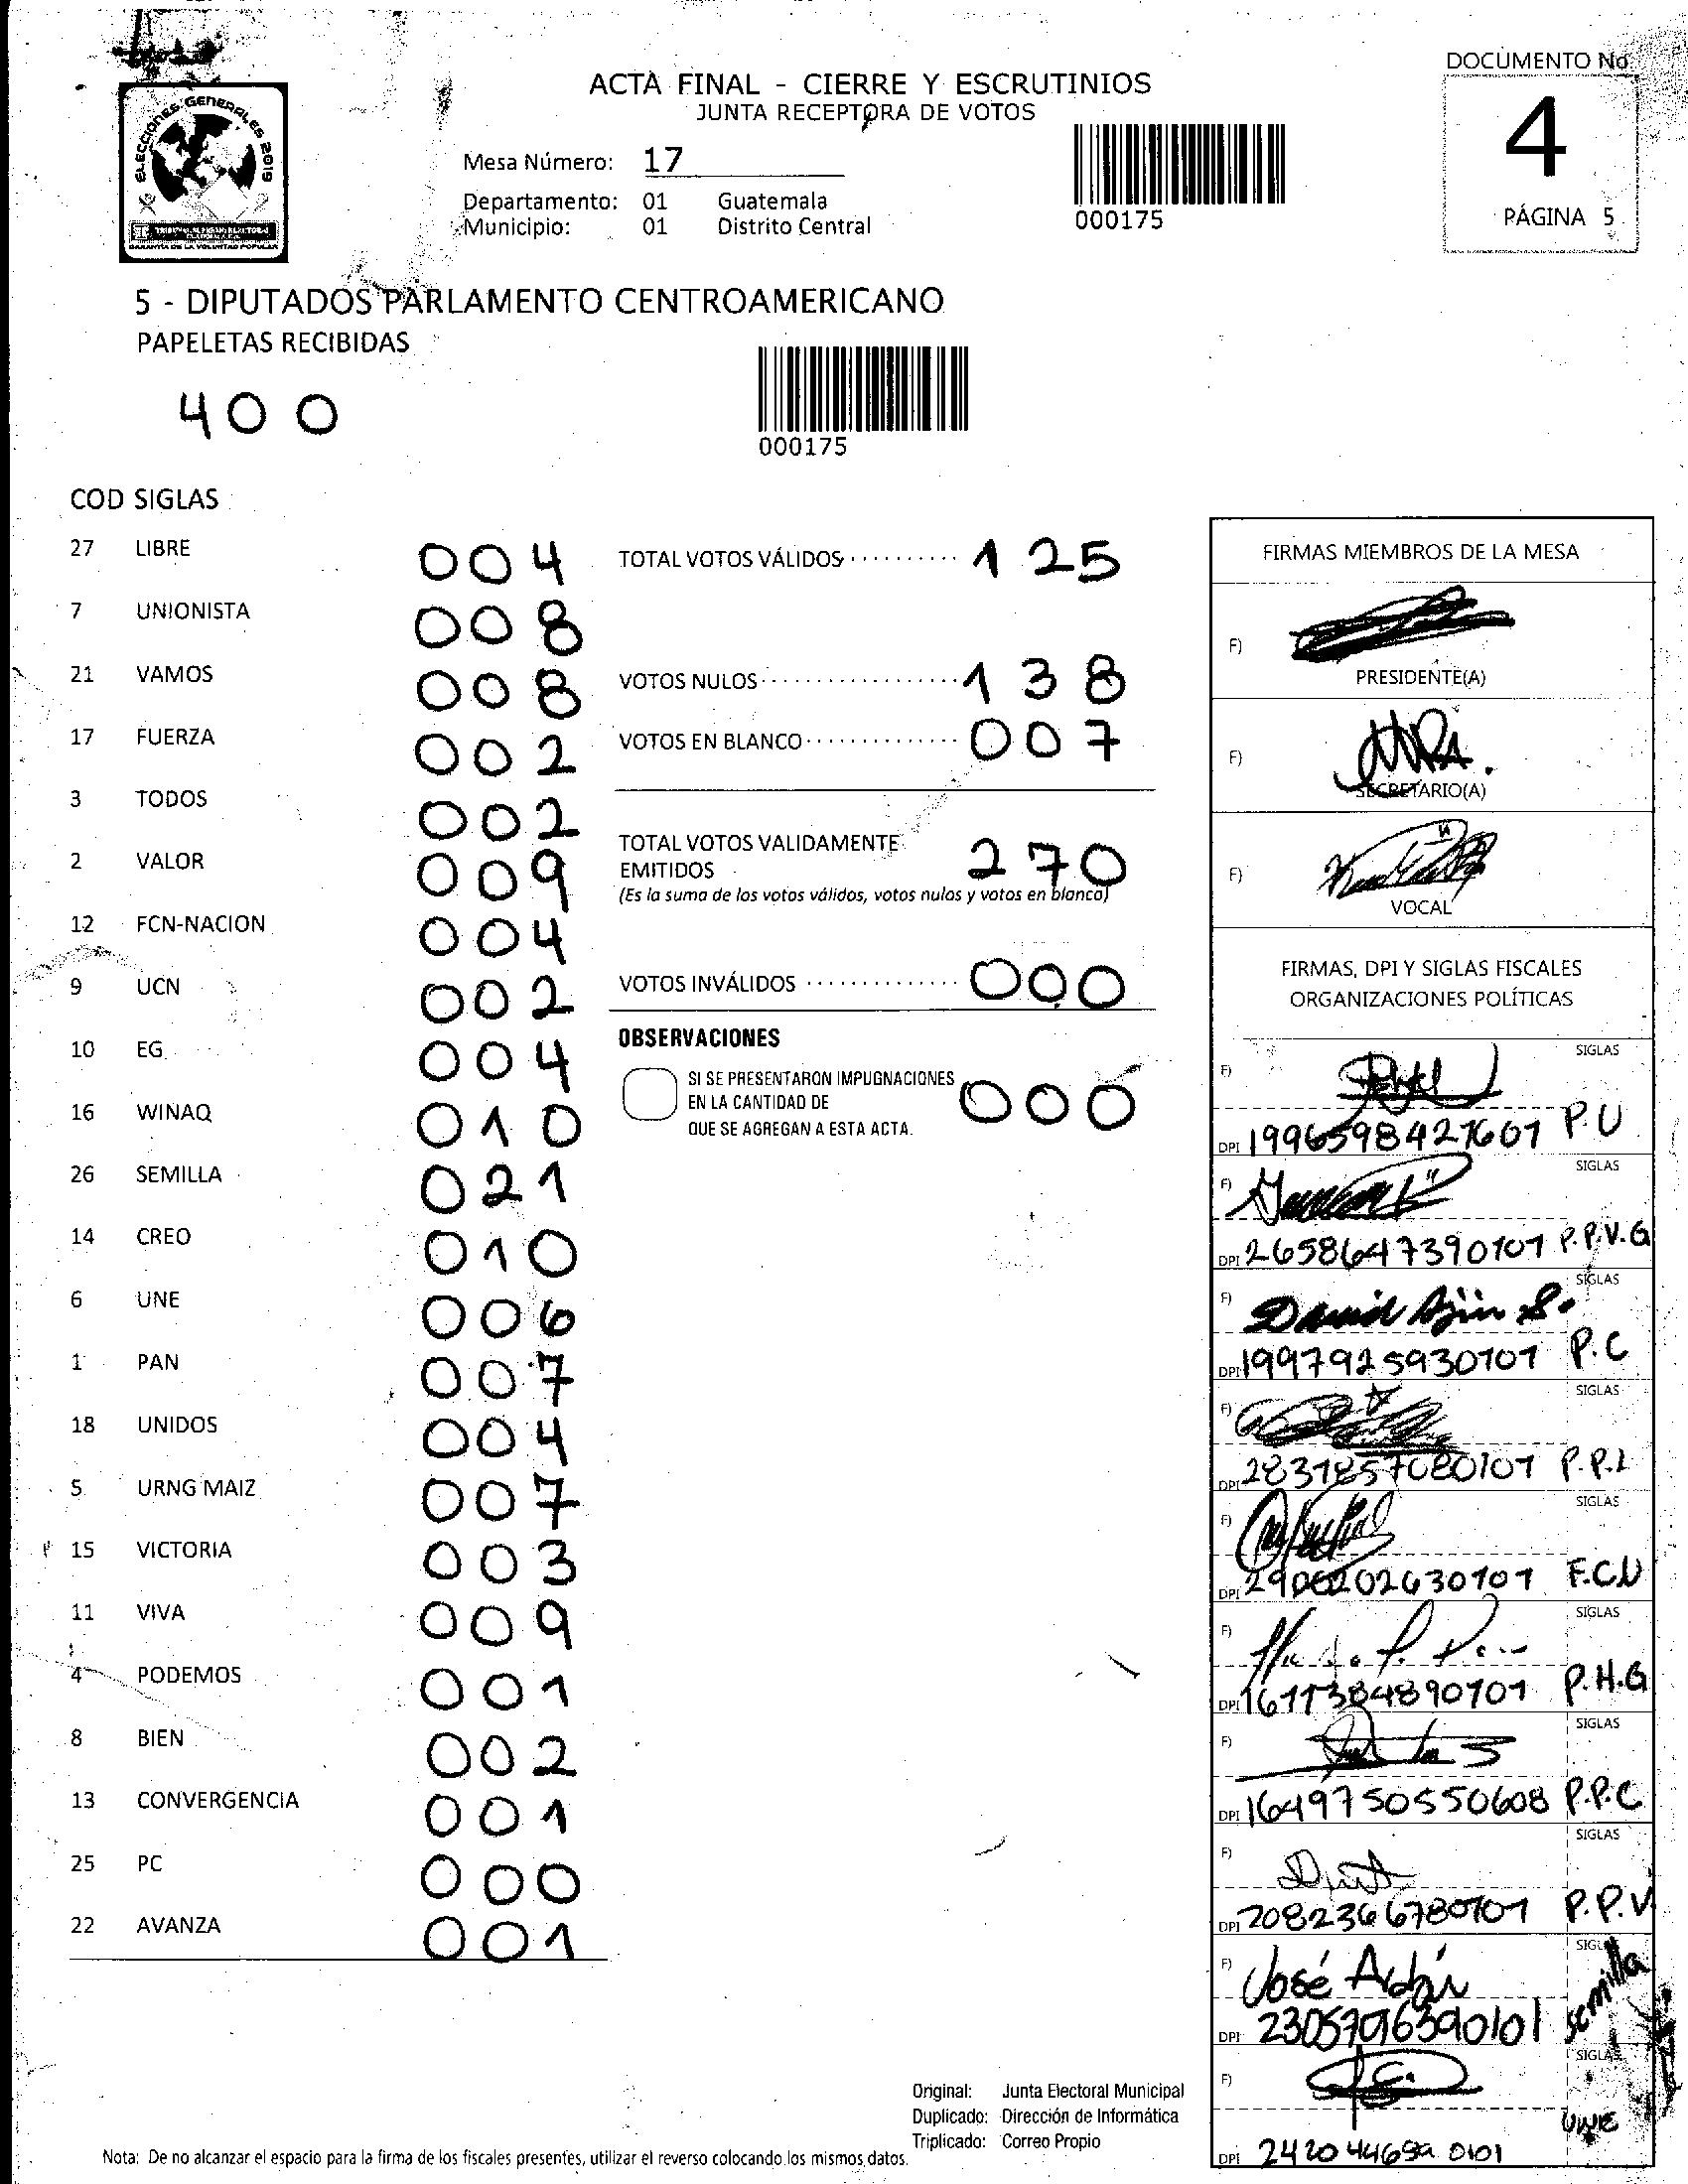 DOCUMENTO No.
4
PÁGINA 5
ELECCIONES GENERALES 2019
ACTA FINAL - CIERRE Y ESCRUTINIOS
JUNTA RECEPTORA DE VOTOS
Mesa Número: 17
Departamento: 01 Guatemala
Municipio: 01 Distrito Central
000175
5 - DIPUTADOS PARLAMENTO CENTROAMERICANO
PAPELETAS RECIBIDAS
400
000175
COD SIGLAS
27 LIBRE 004
7 UNIONISTA 008
21 VAMOS 008
17 FUERZA 002
3 TODOS 002
2 VALOR 009
12 FCN-NACION 004
9 UCN 002
10 EG 004
16 WINAQ 010
26 SEMILLA 021
14 CREO 010
6 UNE 006
1 PAN 007
18 UNIDOS 004
5 URNG MAIZ 007
15 VICTORIA 003
11 VIVA 009
4 PODEMOS 001
8 BIEN 002
13 CONVERGENCIA 001
25 PC 000
22 AVANZA 001
TOTAL VOTOS VÁLIDOS 125
VOTOS NULOS 138
VOTOS EN BLANCO 007
TOTAL VOTOS VALIDAMENTE
EMITIDOS 270
(Es la suma de los votos válidos, votos nulos y votos en blanco)
VOTOS INVÁLIDOS 000
OBSERVACIONES
SI SE PRESENTARON IMPUGNACIONES
EN LA CANTIDAD DE 000
QUE SE AGREGAN A ESTA ACTA.
FIRMAS MIEMBROS DE LA MESA
F)
PRESIDENTE(A)
F)
SECRETARIO(A)
F)
VOCAL
FIRMAS, DPI Y SIGLAS FISCALES
ORGANIZACIONES POLÍTICAS
F) SIGLAS
DPI P.U
F) SIGLAS
DPI 2658647390101 P.P.V.G
F) David Ajin S. SIGLAS
DPI 1997925930101 P.C
F) SIGLAS
DPI 2831857080101 P.P.L
F) SIGLAS
DPI 2906202630101 F.C.N
F) SIGLAS
DPI P.H.G
F) SIGLAS
DPI 1649750550608 P.P.C
F) SIGLAS
DPI 2082366780101 P.P.V
F) José Adán SIGLAS
DPI Semilla
F) SIGLAS
DPI UNE
Original: Junta Electoral Municipal
Duplicado: Dirección de Informática
Triplicado: Correo Propio
Nota: De no alcanzar el espacio para la firma de los fiscales presentes, utilizar el reverso colocando los mismos datos.